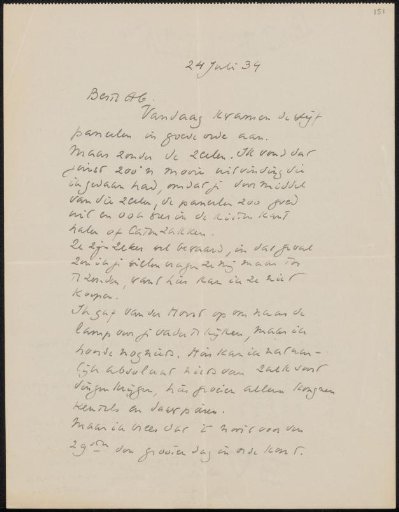 151
24 Juli 34
Beste Ab.
Vandaag kwamen de vijf
panelen in goede orde aan.
Maar zonder de zeelen. Ik vond dat
juist zoo'n mooie uitvinding die
in gedaan had, omdat je door middel
van die zeelen, de panelen zoo goed
uit en ook weer in de kisten kunt
halen of laten zakken.
Ze zijn zeker wel bewaard, in dat geval
zou ik je willen vragen ze mij maar toe
te zenden, want hier kan ik ze niet
koopen.
Ik gaf van der Horst op om naar de
lamp voor je vader te kijken, maar ik
hoorde nog niets. Hier kan ik natuur-
lijk absoluut niets van
dingen krijgen, hier groeien alleen
en
Maar ik vrees dat 't nooit voor den
29sten den dag in orde komt.